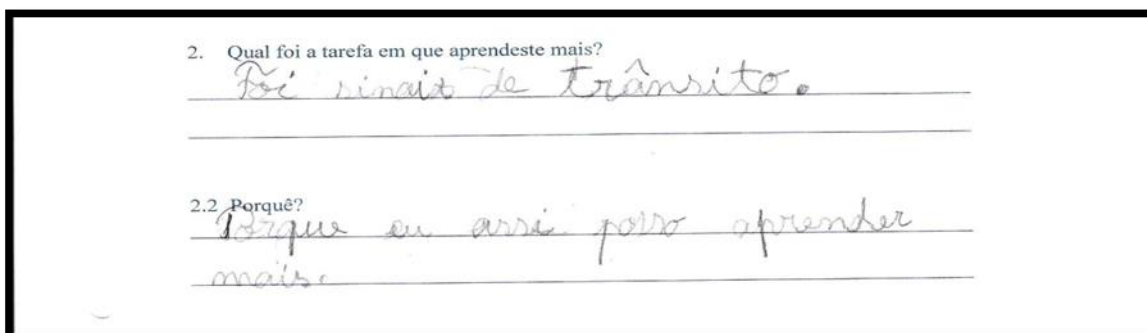 2. Qual foi a tarefa em que aprendeste mais?
Foi sinais de trânsito.
2.2 Porquê?
Porque eu assi posso aprender
mais.